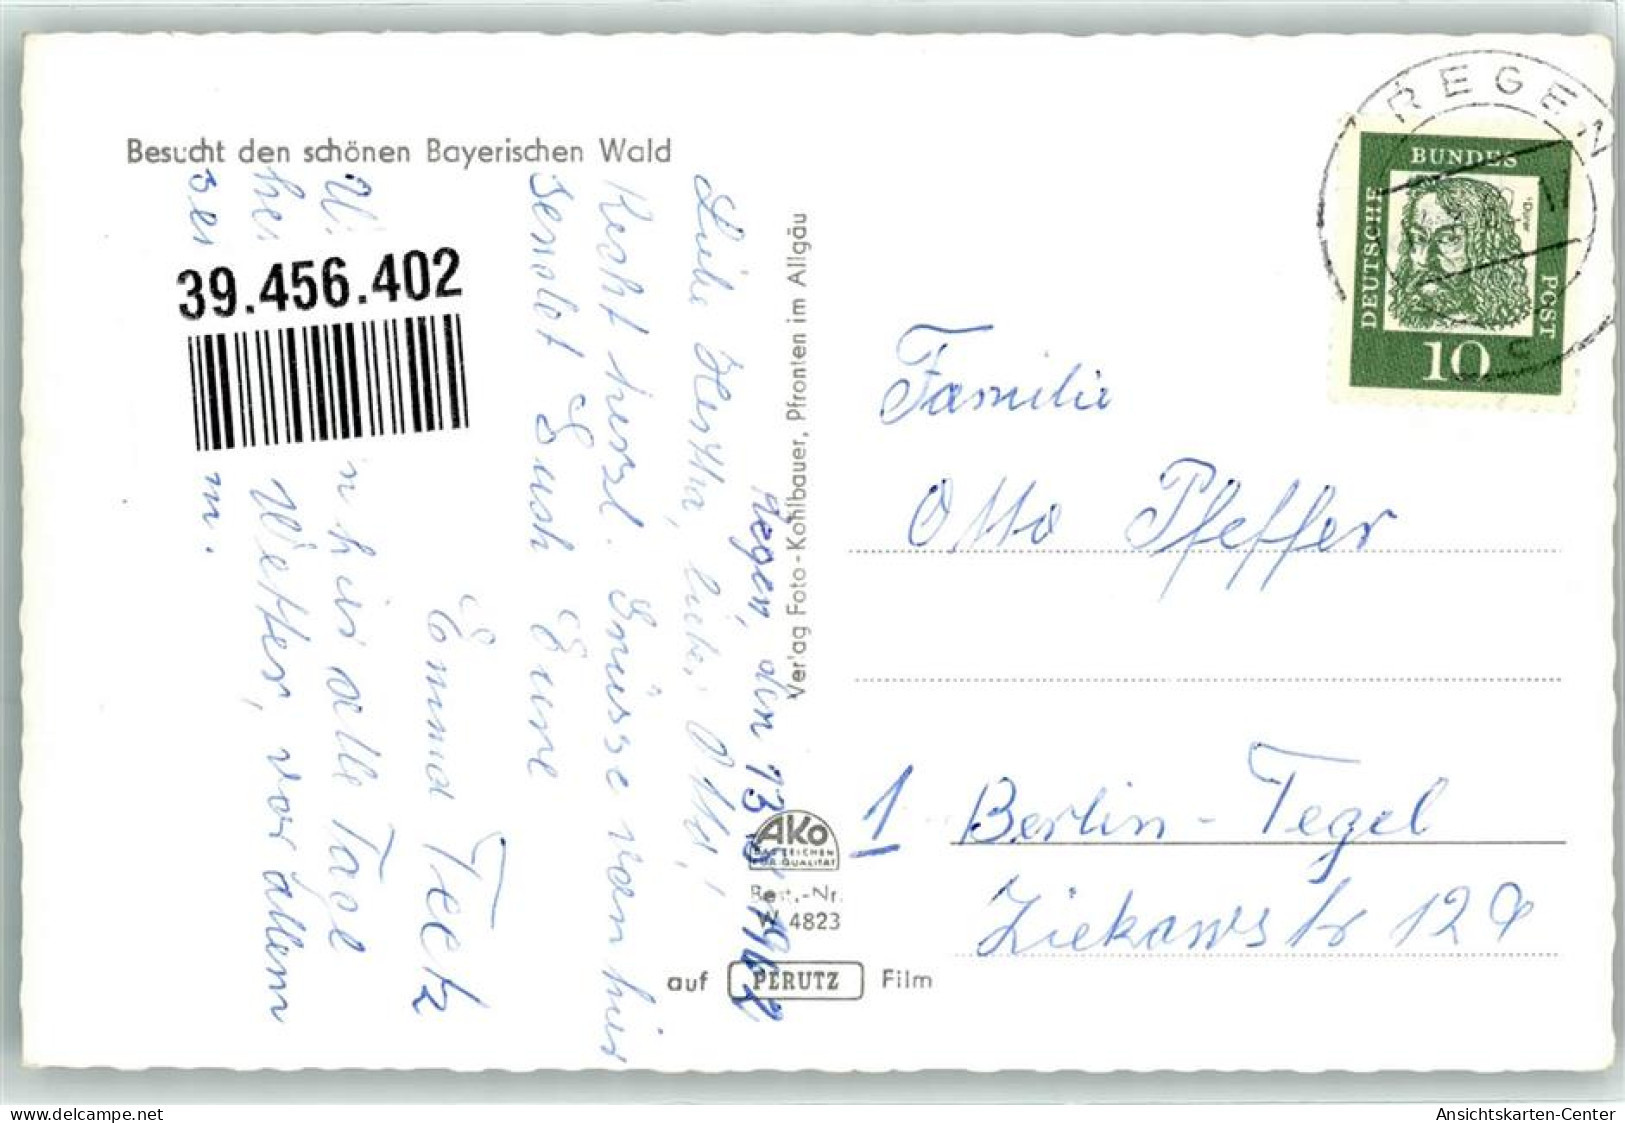 Besucht den schönen Bayerischen Wald
REGEN
DEUTSCHE
BUNDES
POST
Dürer
10
c
39.456.402
Verlag Foto-Kohlbauer, Pfronten im Allgäu
Regen, den 13. 1962
Liebe Hertha, lieber Otto!
Recht herzl. Grüsse von hier
sendet Euch Eure
Emma Teetz
n hier alle Tage
Wetter, vor allem
m.
Familie
Otto Pfeffer
1 Berlin-Tegel
Ziekowstr 129
AKo
DAS ZEICHEN
FÜR QUALITÄT
Best.-Nr.
W 4823
auf PERUTZ Film
www.delcampe.net
Ansichtskarten-Center